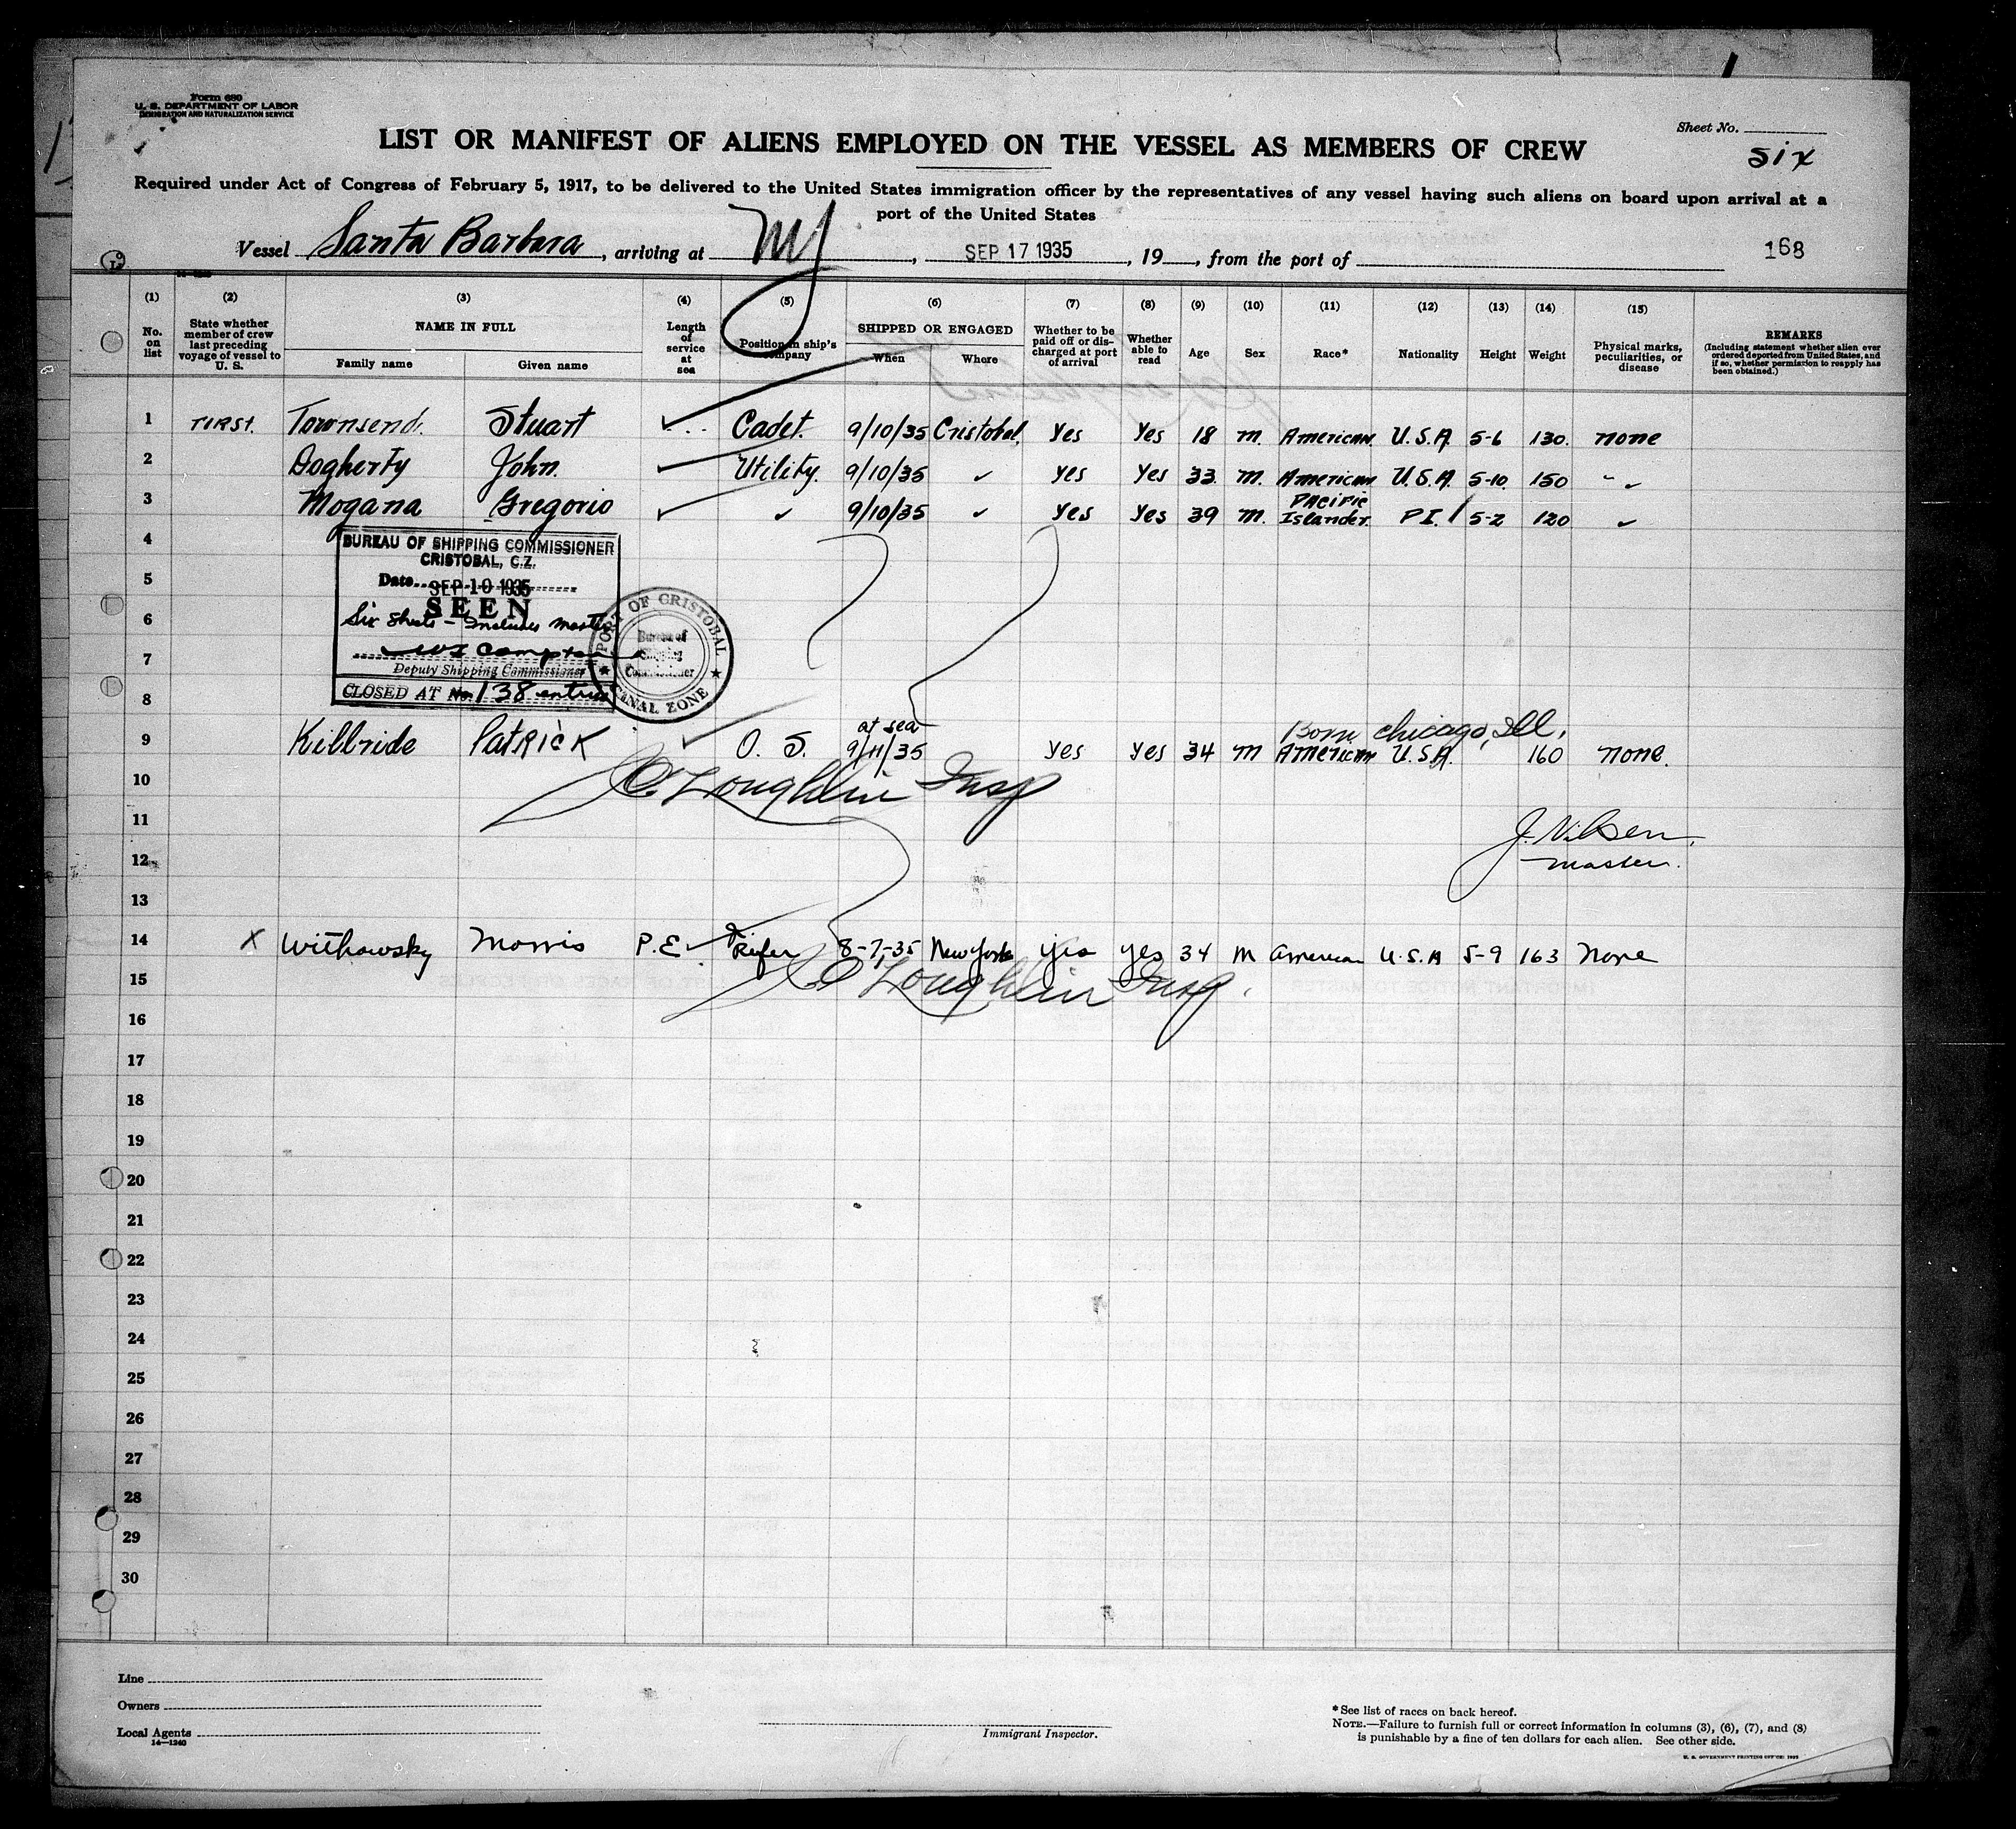 Form 680
U. S. DEPARTMENT OF LABOR
IMMIGRATION AND NATURALIZATION SERVICE
Sheet No.
six
LIST OR MANIFEST OF ALIENS EMPLOYED ON THE VESSEL AS MEMBERS OF CREW
Required under Act of Congress of February 5, 1917, to be delivered to the United States immigration officer by the representatives of any vessel having such aliens on board upon arrival at a
port of the United States
Vessel Santa Barbara, arriving at NY, SEP 17 1935, 19, from the port of 168
(1) No. on list
(2) State whether member of crew last preceding voyage of vessel to U. S.
(3) NAME IN FULL Family name Given name
(4) Length of service at sea
(5) Position in ship's company
(6) SHIPPED OR ENGAGED When Where
(7) Whether to be paid off or discharged at port of arrival
(8) Whether able to read
(9) Age
(10) Sex
(11) Race*
(12) Nationality
(13) Height
(14) Weight
(15) Physical marks, peculiarities, or disease
REMARKS
(Including statement whether alien ever ordered deported from United States, and if so, whether permission to reapply has been obtained.)
1 First. Townsend. Stuart Cadet. 9/10/35 Cristobal. Yes Yes 18 m. American U.S.A. 5-6 130. none
2 Dogherty John. Utility. 9/10/35 ✓ Yes Yes 33 m. American U.S.A. 5-10. 150 " ✓
3 Mogana Gregorio ✓ 9/10/35 ✓ Yes Yes 39 m. Pacific Islander. P.I. 5-2 120 ✓
4
BUREAU OF SHIPPING COMMISSIONER
CRISTOBAL, C.Z.
5
Date SEP 10 1935
SEEN
6
Six Sheets - Includes Master
7
Deputy Shipping Commissioner
CLOSED AT No. 138 entries
PORT OF CRISTOBAL
Bureau of
Shipping
Commissioner
CANAL ZONE
8
at sea
Born Chicago, Ill.
9 Killride Patrick O. S. 9/11/35 Yes Yes 34 m American U.S.A. 160 none.
10 O'Loughlin Insp
11
J. Nilsen.
12
Master.
13
14 X Withowsky Morris P.E. Reefer 8-7-35 New York yes yes 34 M American U.S.A 5-9 163 None
15 O'Loughlin Insp.
16
17
18
19
20
21
22
23
24
25
26
27
28
29
30
Line
Owners
Local Agents
14-1240
Immigrant Inspector.
*See list of races on back hereof.
NOTE.—Failure to furnish full or correct information in columns (3), (6), (7), and (8)
is punishable by a fine of ten dollars for each alien. See other side.